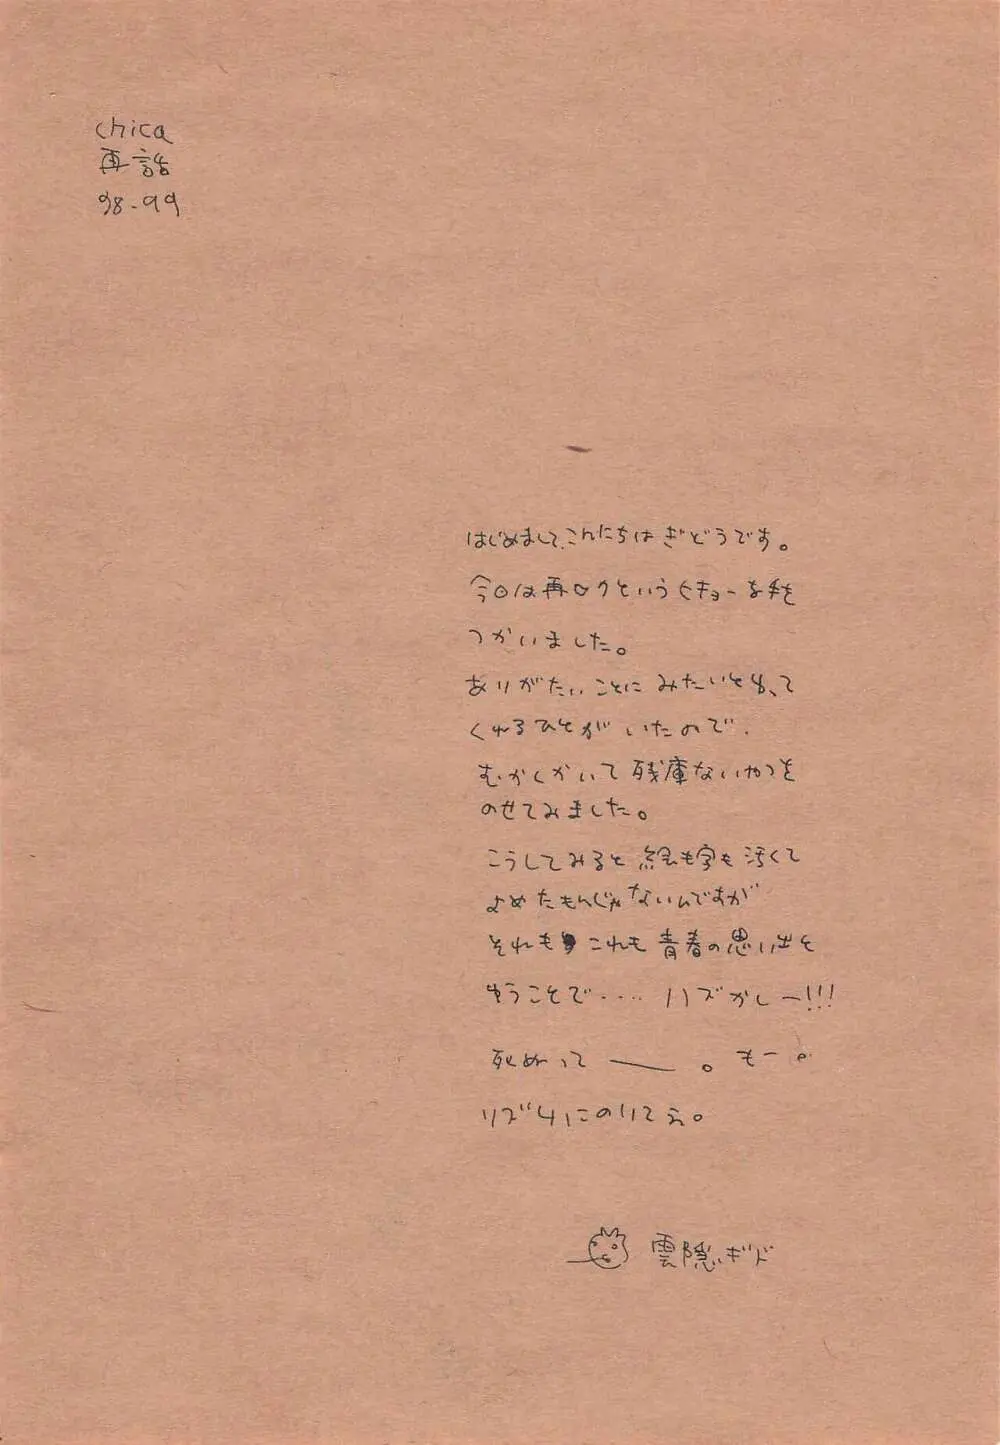 chica
再話
98-99
はじめまして、こんにちは ぎどうです。
今回は再ロクというヒキョーな手を
つかいました。
ありがたいことに みたいと思って
くれるひとが いたので、
むかしかいて 残庫ないやつを
のせてみました。
こうしてみると 絵も字も 汚くて
よめたもんじゃないんですが
それも これも 青春の思い出と
ゆうことで‥‥ ハズかしー!!!
死ぬって ― 。 もー。
リズムにのりてえ。
雲隠ギド